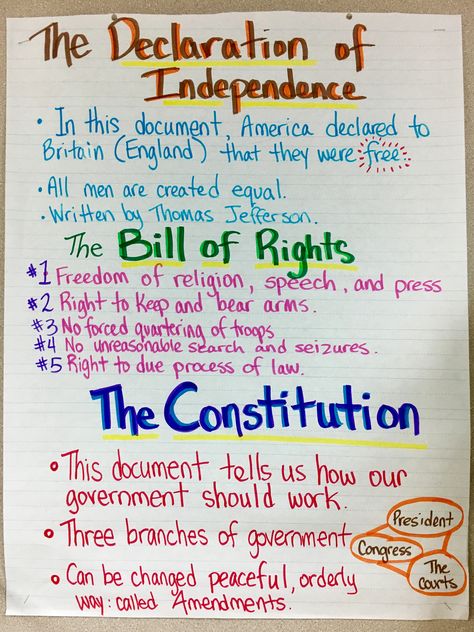 The Declaration of
Independence
• In this document, America declared to
Britain (England) that they were free.
• All men are created equal.
• Written by Thomas Jefferson.
The Bill of Rights
#1 Freedom of religion, speech, and press
#2 Right to keep and bear arms.
#3 No forced quartering of troops
#4 No unreasonable search and seizures.
#5 Right to due process of law.
The Constitution
• This document tells us how our
government should work.
• Three branches of government
President
Congress
The
Courts
• Can be changed peaceful, orderly
way: called Amendments.